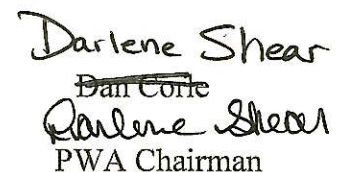 Darlene Shear
Dan Corle
Darlene Shear
PWA Chairman